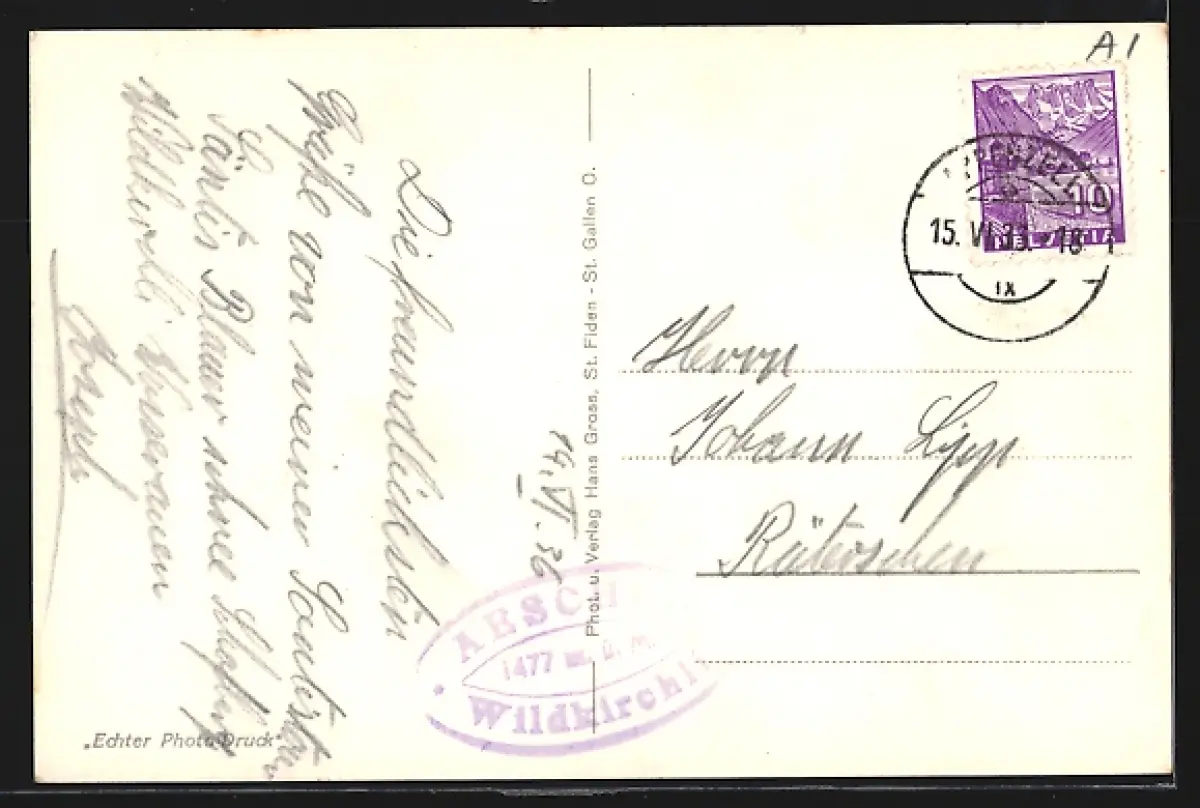 A1
APPENZELL
15. VI. 36. - 18
IX
10
HELVETIA
Die freundlichsten
Grüße von meiner
Säntis Blauer schnee
Wildkirchli
14. VI. 36
Phot. u. Verlag Hans Gross, St. Fiden - St. Gallen O.
Herrn
Johann Lipp
Räterschen
AESCH
1477 m. ü. M.
Wildkirchli
„Echter Photo-Druck"